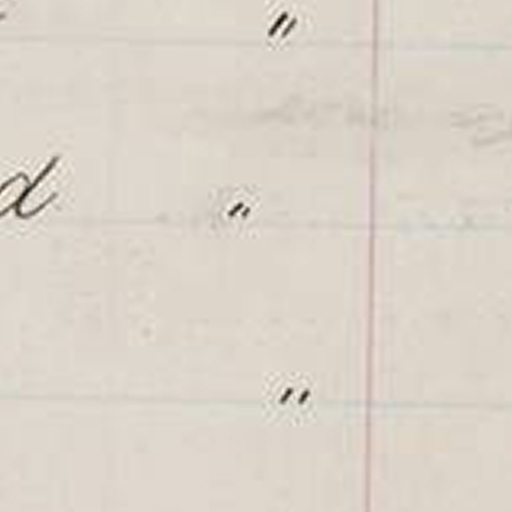 "
d "
"